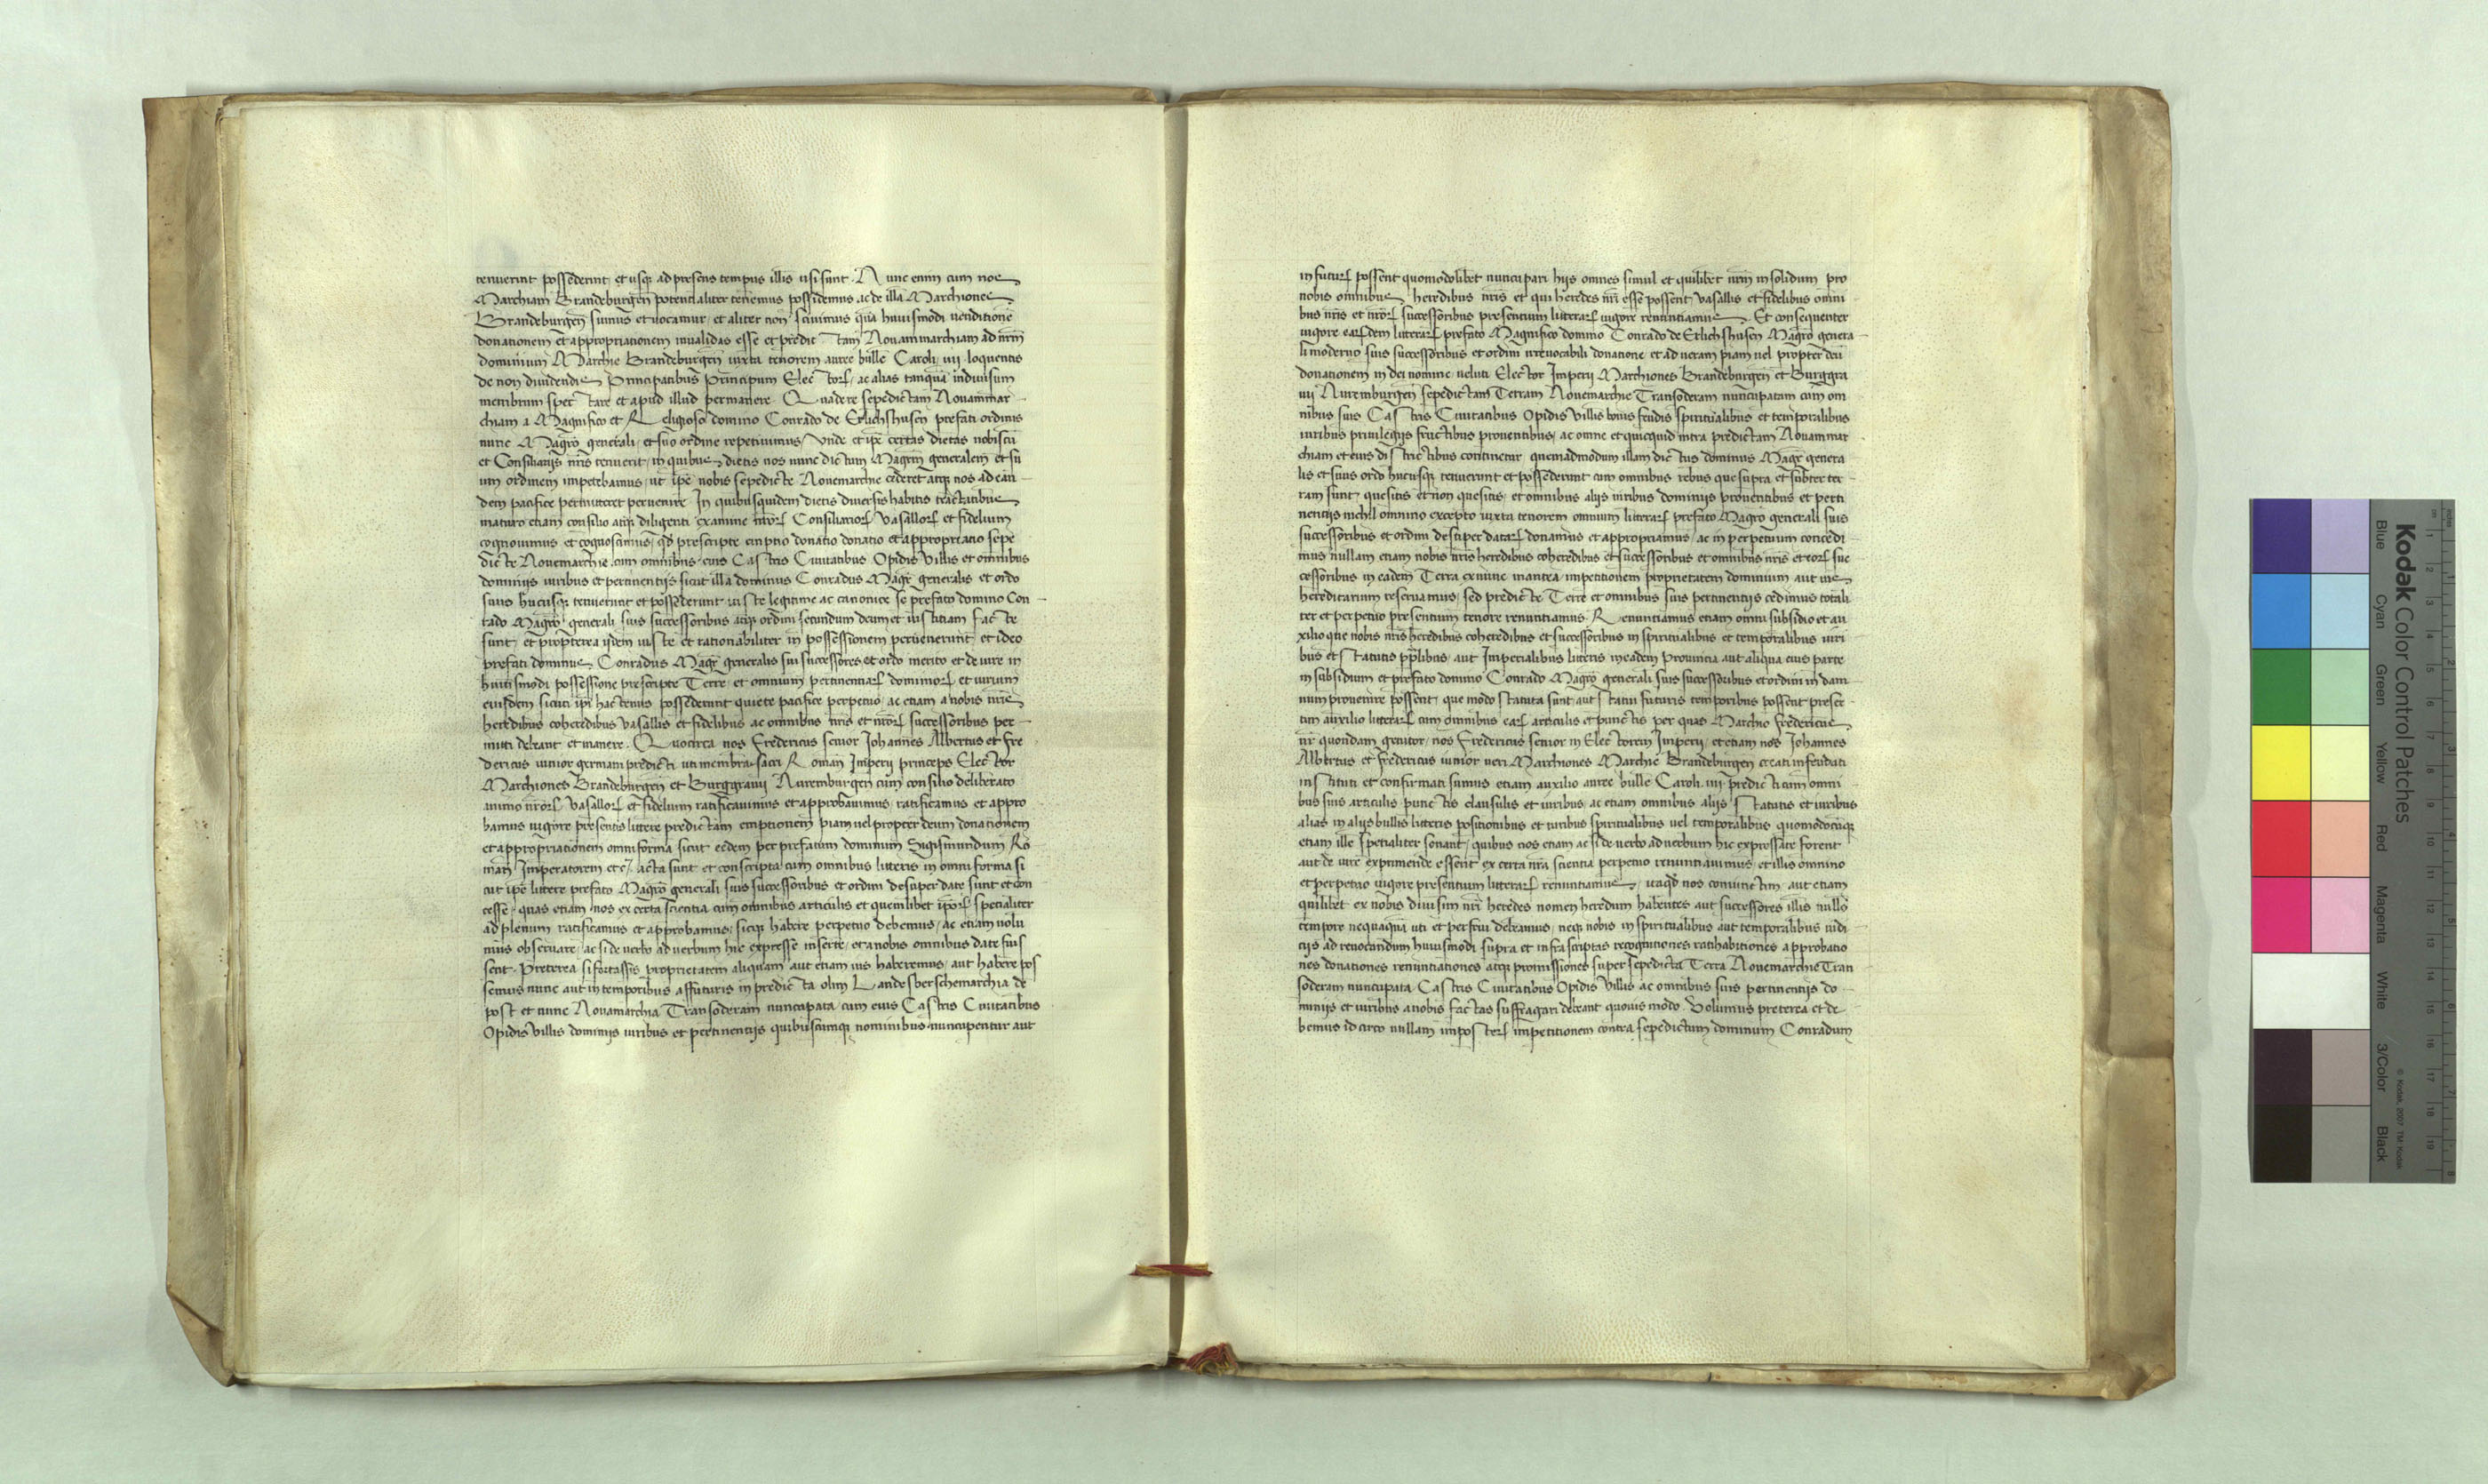 tenuerint possederint et usq̃ ad presens tempus illis usi sunt. Nunc enim cum nos
Marchiam Brandeburgeñ potencialiter tenemus possidemus ac de illa Marchiones
Brandeburgeñ sumus et uocamur et aliter non sciuimus q̃ã huiusmodi uenditionẽ
donationem et appropriationem inualidas esse et predictam Nouammarchiam ad nr̃m
dominium Marchie Brandeburgeñ iuxta tenorem auree bulle Caroli iiii loquentis
de non diuidendis Principatibus Principum Electorꝝ ac alias tanquã indiuisum
membrum spectare et apud illud permanere. Quadere sepedictam Nouammar
chiam a Magnifico et Religioso domino Conrado de Erlichshusen prefati ordinis
nunc Magr̃o generali et suo ordine repetiuimus Unde et ip̃e certas dietas nobiscũ
et Consiliariis nr̃is tenuerit in quibus dietis nos nunc dictum Magr̃m generalem et su
um ordinem impetebamus ut ip̃e nobis sepedicte Nouemarchie cederet atq̃ nos ad ean
dem pacifice permitteret peruenire In quibusquidem dietis diuersis habitis tractatibus
maturo etiam consilio atq̃ diligenti examine nr̃orꝝ Consiliariorꝝ Vasallorꝝ et fidelium
cognouimus et cognoscimus q̃d prescripte emptio donatio donatio et appropriatio sepe
dicte Nouemarchie cum omnibus eius Castris Ciuitatibus Opidis Villis et omnibus
dominiis iuribus et pertinentiis sicut illa dominus Conradus Magr̃ generalis et ordo
suus hucusq̃ tenuerunt et possederunt iuste legitime ac canonice se prefato domino Con
rado Magr̃o generali suis successoribus atq̃ ordini secundum deum et iustitiam facte
sunt et propterea iidem iuste et rationabiliter in possessionem peruenerunt et ideo
prefati dominus Conradus Magr̃ generalis sui successores et ordo merito et de iure in
huiusmodi possessione prescripte Terre et omnium pertinentiarꝝ dominiorꝝ et iurium
eiusdem sicuti ip̃i hactenus possederunt quiete pacifice perpetuo ac etiam a nobis nr̃is
heredibus coheredibus Vasallis et fidelibus ac omnibus nr̃is et nr̃orꝝ successoribus per
mitti debeant et manere. Quocirca nos Fredericus senior Johannes Albertus et Fre
dericus iunior germani predicti uti membra sacri Romañ Imperii princeps Elector
Marchiones Brandeburgeñ et Burggrauii Nuremburgeñ cum consilio deliberato
animo nr̃orꝝ Vasallorꝝ et fidelium ratificauimus et approbauimus ratificamus et appro
bamus uigore presentis littere predictam emptionem piam uel propter deum donationem
et appropriationem omni forma sicut eedem per prefatum dominum Sigismundum Ro
mañ Imperatorem etc̃ acta sunt et conscripta cum omnibus litteris in omni forma si
cut ip̃e littere prefato Magr̃o generali suis successoribus et ordini desuper date sunt et con
cesse quas etiam nos ex certa scientia cum omnibus articulis et quemlibet ip̃orꝝ specialiter
ad plenum ratificamus et approbamus sicq̃ habere perpetuo debemus ac etiam uolu
mus obseruare ac si de uerbo ad uerbum hic expresse inserte et a nobis omnibus date fuis
sent. Preterea si fortassis proprietatem aliquam aut etiam ius haberemus aut habere pos
semus nunc aut in temporibus affuturis in predicta olim Landesberschemarchia de
post et nunc Nouamarchia Transoderam nuncupata cum eius Castris Ciuitatibus
Opidis Villis dominiis iuribus et pertinentiis quibuscumq̃ nominibus nuncupentur aut
in futurꝝ possent quomodolibet nuncupari hiis omnes simul et quilibet nr̃m insolidum pro
nobis omnibus heredibus nr̃is et qui heredes nr̃i esse possent Vasallis et fidelibus omni
bus nr̃is et nr̃orꝝ successoribus presentium litterarꝝ uigore renuntiamus. Et consequenter
uigore earꝝdem litterarꝝ prefato Magnifico domino Conrado de Erlichshusen Magr̃o genera
li moderno suis successoribus et ordini irreuocabili donatione et ad ueram piam uel propter deũ
donationem in dei nomine ueluti Elector Imperii Marchiones Brandeburgeñ et Burggra
uii Nuremburgeñ sepedictam Terram Nouemarchie Transoderam nuncupatam cum om
nibus suis Castris Ciuitatibus Opidis Villis bonis feudis spiritualibus et temporalibus
iuribus priuilegiis fructibus prouentibus ac omne et quicquid intra predictam Nouammar
chiam et eius districtibus continetur quemadmodum illam dictus dominus Magr̃ genera
lis et suus ordo hucusq̃ tenuerunt et possederunt cum omnibus rebus que supra et subter ter
ram sunt quesitis et non quesitis et omnibus aliis iuribus dominiis prouentibus et perti
nentiis nichil omnino excepto iuxta tenorem omnium litterarꝝ prefato Magr̃o generali suis
successoribus et ordini desuper datarꝝ donamus et appropriamus ac in perpetuum concedi
mus nullam etiam nobis nr̃is heredibus coheredibus et successoribus et omnibus nr̃is et eorꝝ suc
cessoribus in eadem Terra exnunc inantea impetitionem proprietatem dominium aut ius
hereditarium reseruamus sed predicte Terre et omnibus suis pertinentiis cedimus totali
ter et perpetuo presentium tenore renuntiamus. Renuntiamus etiam omni subsidio et au
xilio que nobis nr̃is heredibus coheredibus et successoribus in spiritualibus et temporalibus iuri
bus et statutis pp̃libus aut Imperialibus litteris in eadem Prouincia aut aliqua eius parte
in subsidium et prefato domino Conrado Magr̃o generali suis successoribus et ordini in dam
num prouenire possent que modo statuta sunt aut statui futuris temporibus possent preser
tim auxilio litterarꝝ cum omnibus earꝝ articulis et punctis per quas Marchio Fredericus
nr̃ quondam genitor nos Fredericus senior in Electorem Imperii et etiam nos Johannes
Albertus et Fredericus iunior ueri Marchiones Marchie Brandeburgeñ creati infeudati
instituti et confirmati sumus etiam auxilio auree bulle Caroli iiii predicti cum omni
bus suis articulis punctis clausulis et iuribus ac etiam omnibus aliis statutis et iuribus
alias in aliis bullis litteris positionibus et iuribus spiritualibus uel temporalibus quomodocũq̃
etiam ille specialiter sonant quibus nos etiam ac si de uerbo ad uerbum hic expressate forent
aut de iure exprimende essent ex certa nr̃a scientia perpetuo renuntiauimus et illis omnino
et perpetuo uigore presentium litterarꝝ renuntiamus itaq̃d nos coniunctim aut etiam
quilibet ex nobis diuisim nr̃i heredes nomen heredum habentes aut successores illis nullo
tempore nequaquã uti et perfrui debeamus neq̃ nobis in spiritualibus aut temporalibus iudi
ciis ad reuocandum huiusmodi supra et infrascriptas recognitiones ratihabitiones approbatio
nes donationes renuntiationes atq̃ promissiones super sepedicta Terra Nouemarchie Tran
soderam nuncupata Castris Ciuitatibus Opidis Villis ac omnibus suis pertinentiis do
miniis et iuribus a nobis factas suffragari debeant quouis modo. Volumus preterea et de
bemus idcirco nullam imposterꝝ impetitionem contra sepedictum dominum Conradum
Kodak Color Control Patches
Blue Cyan Green Yellow Red Magenta White 3/Color Black
© Kodak, 2007 TM: Kodak